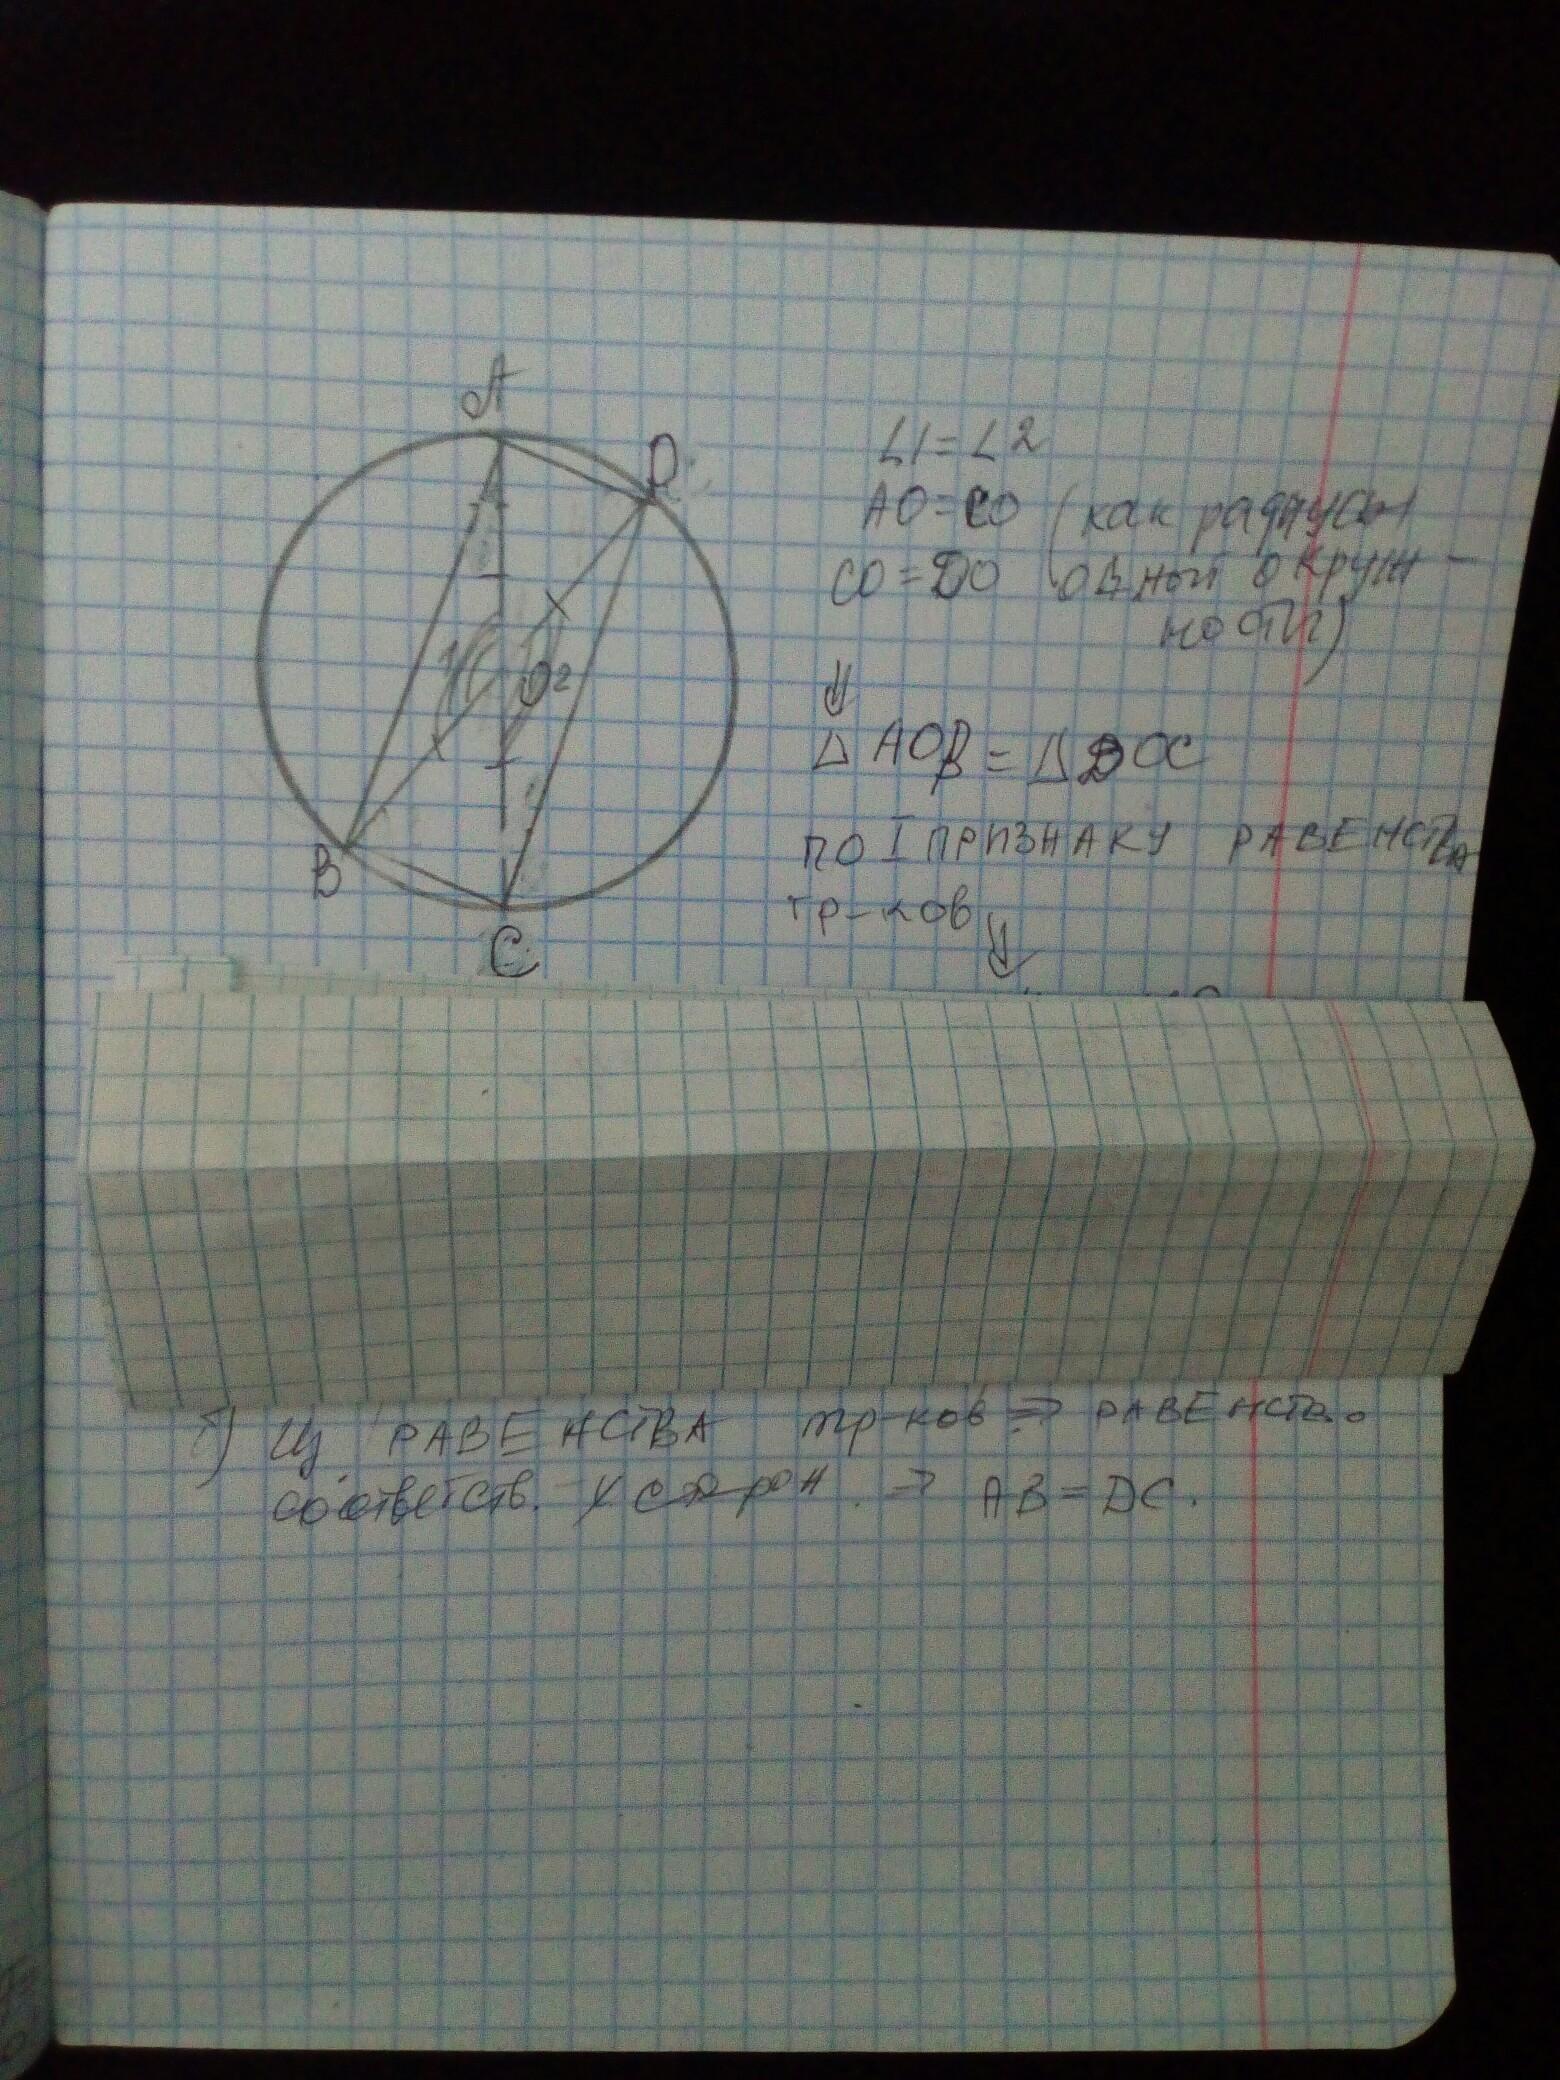 A
D
1
O2
B
C
∠1=∠2
AO=CO (как радиусы
CO=DO одной окруж-
ности)
⇓
△AOB=△DOC
ПО I ПРИЗНАКУ РАВЕНСТВА
тр-ков ⇓
б) Из РАВЕНСТВА тр-ков ⇒ РАВЕНСТВо
соответств. сторон. ⇒ AB=DC.